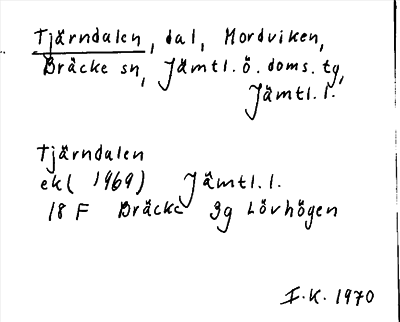 Tjärndalen, dal, Mordviken,
Bräcke sn, Jämtl. ö. doms. tg,
Jämtl. l.
Tjärndalen
ek (1969) Jämtl. l.
18 F Bräcke 9g Lövhögen
I.K. 1970